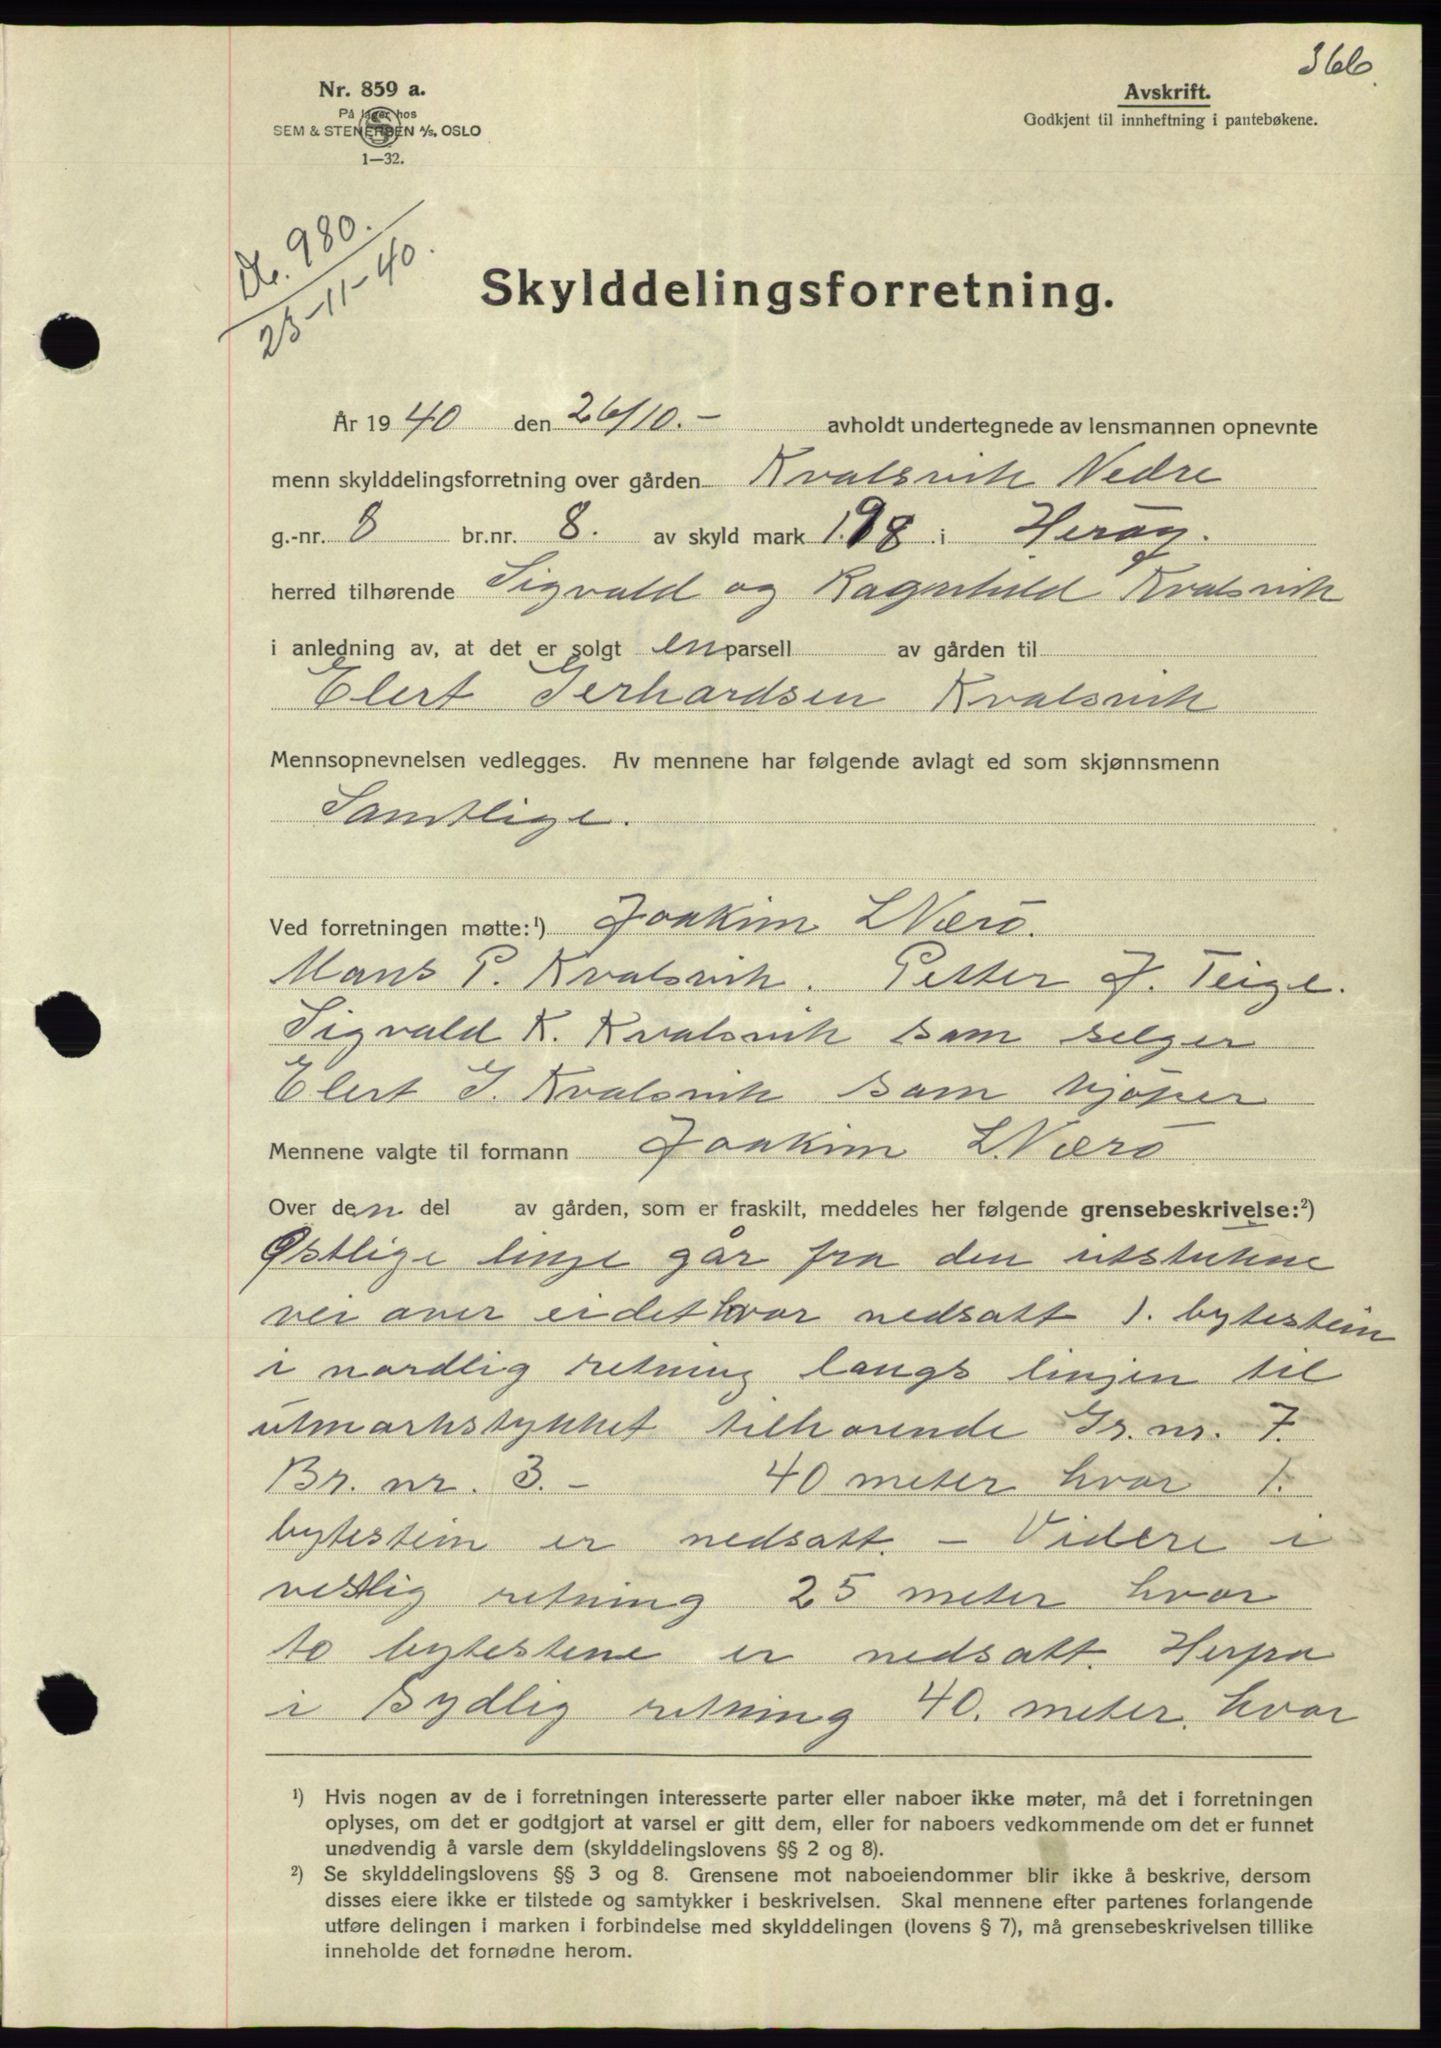 366.
Nr. 859 a.
På lager hos
SEM & STENERSEN A/S, OSLO
1—32.
Avskrift.
Godkjent til innheftning i pantebøkene.
980.
23-11-40.
Skylddelingsforretning.
År 1940 den 26/10.- avholdt undertegnede av lensmannen opnevnte
menn skylddelingsforretning over gården Kvalsvik Nedre
g.-nr. 8 br.nr. 8. av skyld mark 1.98 i Herøy.
herred tilhørende Sigvald og Ragnhild Kvalsvik
i anledning av, at det er solgt en parsell av gården til
Elert Gerhardsen Kvalsvik
Mennsopnevnelsen vedlegges. Av mennene har følgende avlagt ed som skjønnsmenn
Samtlige.
Ved forretningen møtte:¹) Joakim L Nærö.
Mans P. Kvalsvik. Petter J. Teige.
Sigvald K. Kvalsvik som selger
Elert G. Kvalsvik som kjöper
Mennene valgte til formann Joakim L. Nærö
Over den del av gården, som er fraskilt, meddeles her følgende grensebeskrivelse:²)
Østlige linje går fra den utstukne
vei over eidet hvor nedsatt 1. bytestein
i nordlig retning langs linjen til
utmarkstykket tilhørende Gr. nr. 7.
Br. nr. 3. - 40 meter hvor 1.
bytestein er nedsatt. - Videre i
vestlig retning 25 meter hvor
to bytestene er nedsatt. Herfra
i sydlig retning 40. meter. hvor
¹) Hvis nogen av de i forretningen interesserte parter eller naboer ikke møter, må det i forretningen
oplyses, om det er godtgjort at varsel er gitt dem, eller for naboers vedkommende om det er funnet
unødvendig å varsle dem (skylddelingslovens §§ 2 og 8).
²) Se skylddelingslovens §§ 3 og 8. Grensene mot naboeiendommer blir ikke å beskrive, dersom
disses eiere ikke er tilstede og samtykker i beskrivelsen. Skal mennene efter partenes forlangende
utføre delingen i marken i forbindelse med skylddelingen (lovens § 7), må grensebeskrivelsen tillike
inneholde det fornødne herom.